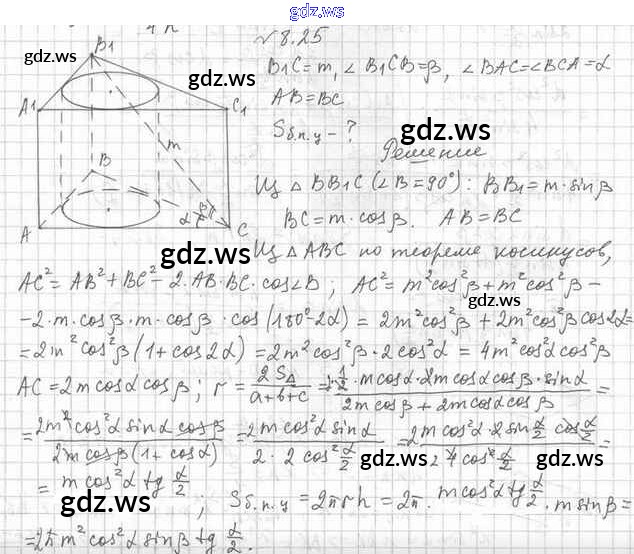 gdz.ws
4 π
√ 8.25
B1
gdz.ws
gdz.ws
B1C=m, ∠B1CB=β, ∠BAC=∠BCA=α
AB=BC
A1
C1
Sб.п.ц - ?
gdz.ws
Решение
m
B
Из △BB1C (∠B=90°): BB1=m·sinβ
α
β
BC=m·cosβ. AB=BC
A
C
gdz.ws
Из △ABC по теореме косинусов,
AC²=AB²+BC²-2·AB·BC·cos∠B; AC²=m²cos²β+m²cos²β-
gdz.ws
-2·m·cosβ·m·cosβ·cos(180°-2α)=2m²cos²β+2m²cos²βcos2α=
=2m²cos²β(1+cos2α)=2m²cos²β·2cos²α=4m²cos²αcos²β
AC=2mcosαcosβ; r=2S△/(a+b+c)=2·1/2·mcosα·2mcosαcosβ·sinα/(2mcosβ+2mcosαcosβ)=
=2m²cos²αsinαcosβ/(2mcosβ(1+cosα))=2mcos²αsinα/(2·2cos²α/2)=2mcos²α·2sinα/2cosα/2/(4cos²α/2)=
gdz.ws
gdz.ws
=mcos²αtgα/2; Sб.п.ц=2πrh=2π·mcos²αtgα/2·msinβ=
gdz.ws
gdz.ws
=2πm²cos²αsinβtgα/2.